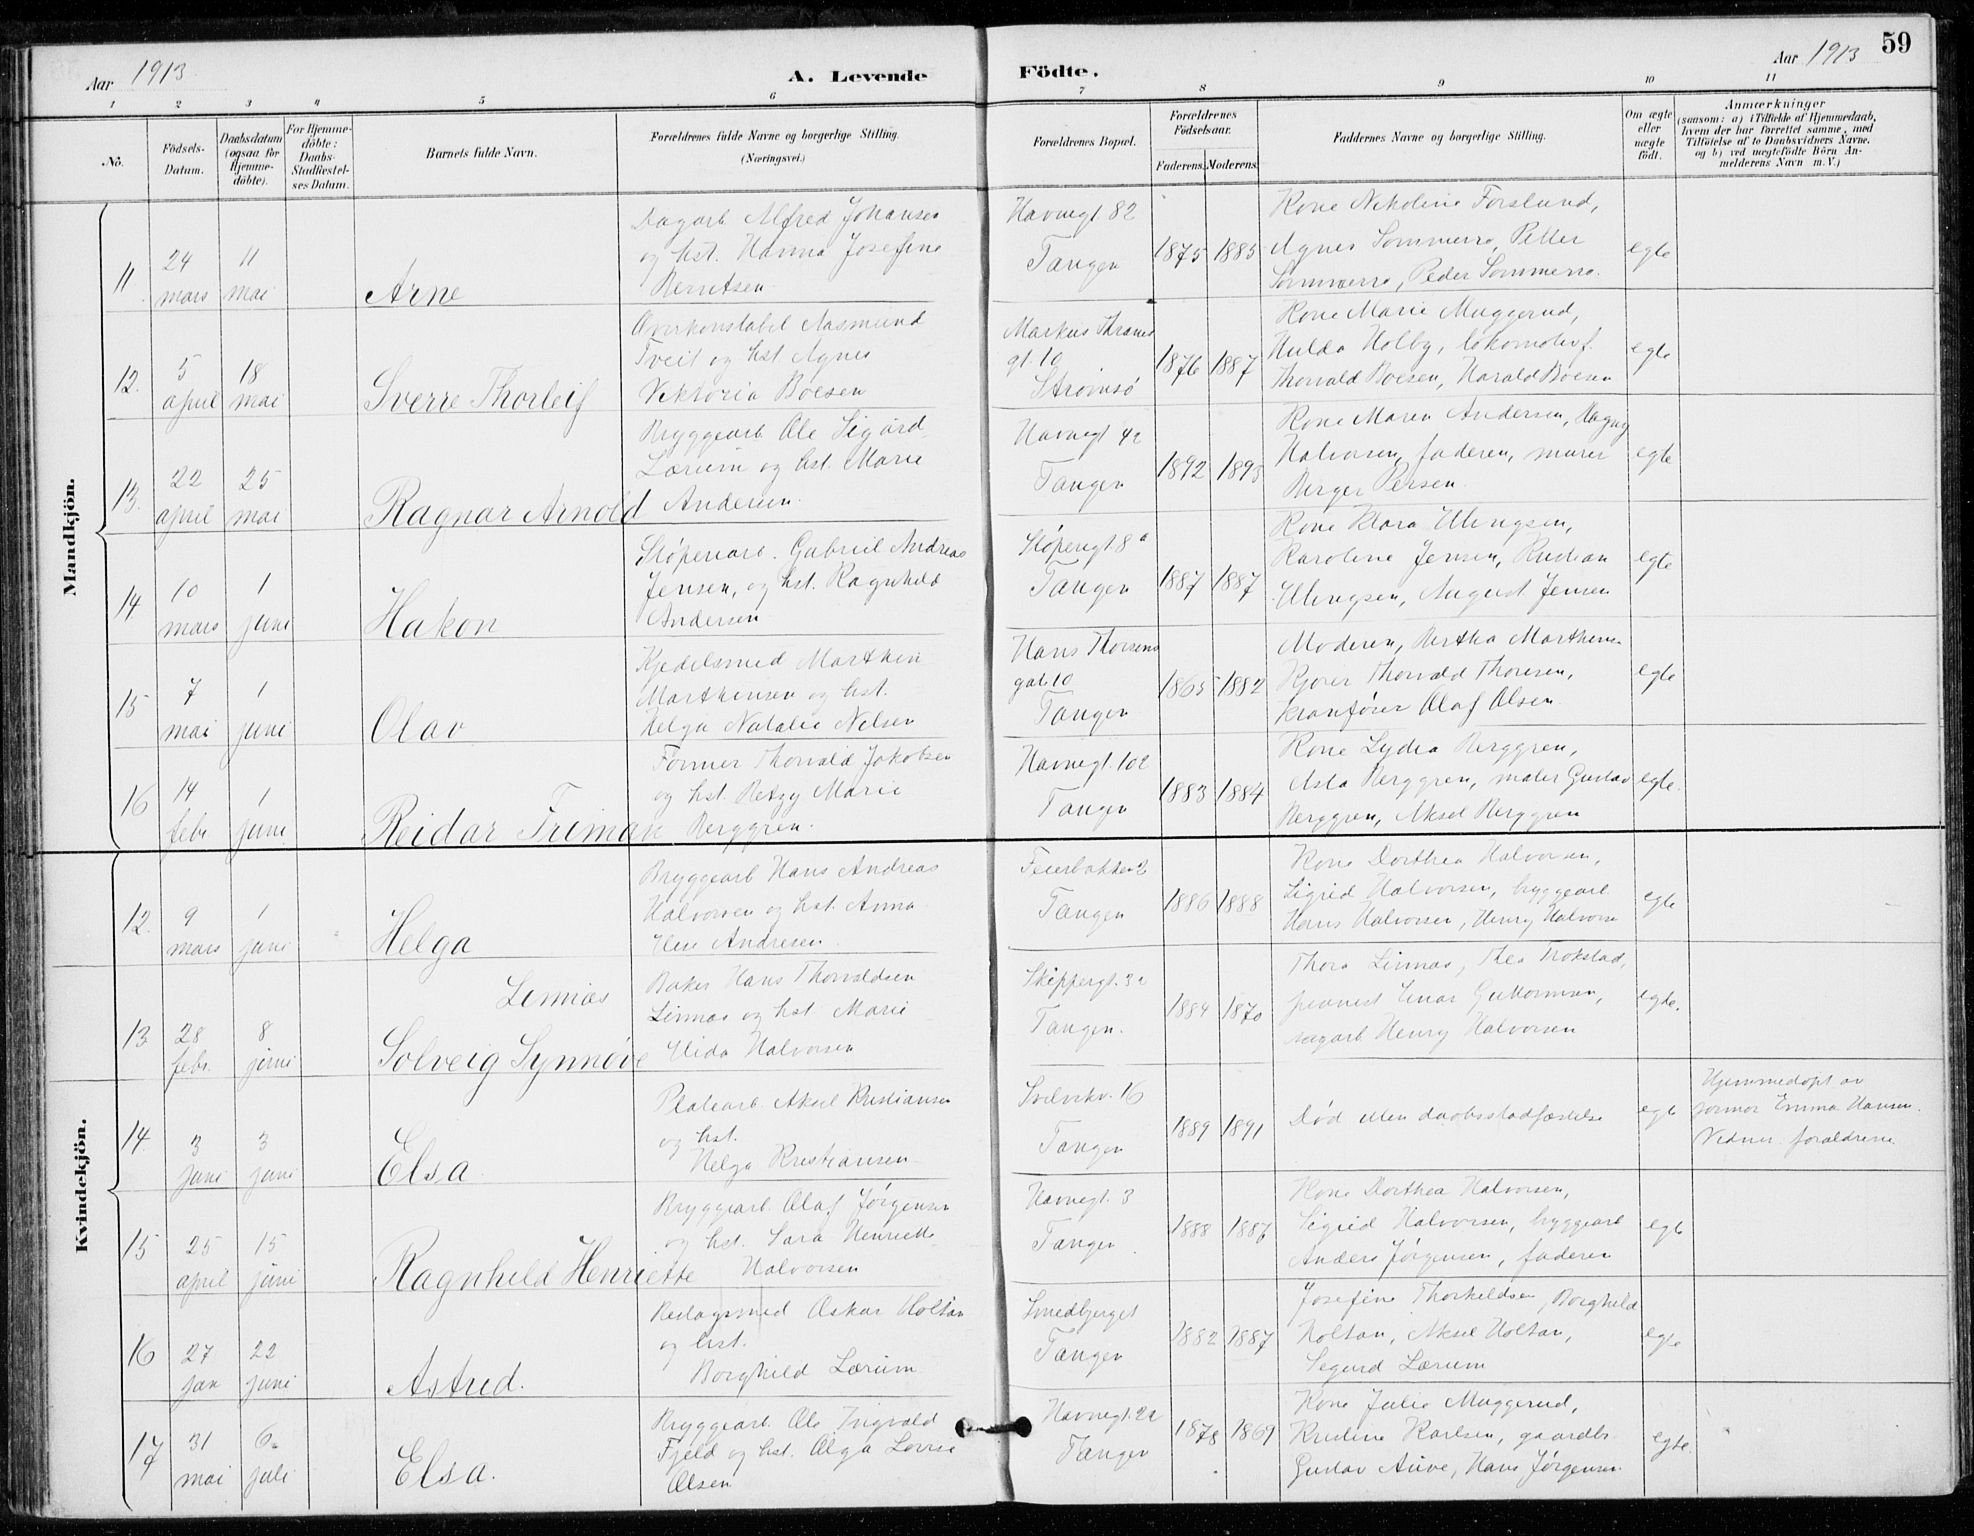 Aar 1913
A. Levende Födte.
Aar 1913
59
1 2 3 4 5 6 7 8 9 10 11
No.
Födsels-Datum.
Daabsdatum (ogsaa for Hjemme-döbte).
For Hjemme-döbte: Daabs-Stadfæstel-ses Datum.
Barnets fulde Navn.
Forældrenes fulde Navne og borgerlige Stilling. (Næringsvei.)
Forældrenes Bopæl.
Forældrenes Födselsaar.
Faderens. Moderens.
Faddernes Navne og borgerlige Stilling.
Om ægte eller uægte födt.
Anmærkninger
(saasom: a) i Tilfælde af Hjemmedaab, hvem der har forrettet samme, med Tilföielse af to Daabsvidners Navne, og b) ved uægtefödte Börn An-melderens Navn m. V.)
Mandkjön.
11
24 mars
11 mai
Arne
Dagarb. Alfred Johansen
og hst. Hanna Josefine
Berntsen
Havnegt 82
Tangen
1875 1885
Kone Nikoline Forslund,
Agnes Sommerro, Petter
Sommerro, Peder Sommerro.
egte
12.
5 april
18 mai
Sverre Thorleif
Overkonstabel Aasmund
Tveit og hst. Agnes
Viktoria Boesen
Markus Thranes
gt. 10
Strømsø
1876 1887
Kone Marie Muggerud,
Hulda Holby, lokomotivf.
Thorvald Boesen, Harald Boesen
egte
13.
22 april
25 mai
Ragnar Arnold
Bryggearb. Ole Sigurd
Lærum og hst. Marie
Andersen.
Havnegt 42
Tangen
1892 1893
Kone Maren Andersen, Dagny
Halvorsen, faderen, murer
Birger Persen
egte
14
10 mars
1 juni
Hakon
Støperiarb. Gabriel Andreas
Jensen, og hst. Ragnhild
Andersen
Støperigt. 8 a
Tangen
1887 1887
Kone Klara Ellingsen,
Karoline Jensen, Kristian
Ellingsen, August Jensen
egte
15
7 mai
1 juni
Olav
Kjedelsmed Marthin
Marthinsen og hst.
Helga Natalie Nilsen
Hans Thorsens
gate 10
Tangen
1865 1882
Moderen, Bertha Marthinsen
Kjører Thorvald Thoresen,
kranfører Olaf Olsen
egte
16
14 febr
1 juni
Reidar Trimann
Former Thorvald Jakobsen
og hst. Betzy Marie
Berggren.
Havnegt. 102
Tangen
1883 1884
Kone Lydia Berggren,
Asta Berggren, maler Gustav
Berggren, Aksel Berggren
egte.
Kvindekjön.
12.
9 mars
1 juni
Helga
Bryggearb Hans Andreas
Halvorsen og hst. Anna
Elise Andresen
Feierbakken 2
Tangen
1886 1888
Kone Dorthea Halvorsen,
Sigrid Halvorsen, bryggearb.
Hans Halvorsen, Henry Halvorsen
egte
13
28 febr.
8 juni
Linnias
Solveig Synnøve
Baker Hans Thorvaldsen
Linnas og hst. Marie
Elida Halvorsen
Skippergt. 32
Tangen.
1884 1870
Thora Linnas, Thea Trokstad,
pianist Einar Guttormsen,
sagarb Henry Halvorsen
egte.
14.
3 juni
3 juni
Elsa.
Platearb. Aksel Kristiansen
og hst.
Helga Kristiansen
Svelvikv. 16
Tangen
1889 1891
Død uten daabsstadfæstelse
egte
Hjemmedøpt av
farmor Emma Hansen.
Vidner forældrene
15
25 april
15 juni
Ragnhild Henriette
Bryggearb. Olaf Jørgensen
og hst. Sara Henriette
Halvorsen
Havnegt. 3
Tangen
1888 1887
Kone Dorthea Halvorsen,
Sigrid Halvorsen, bryggearb
Anders Jørgensen, faderen
egte
16
27 jan
22 juni
Astrid.
Beslagsmed Oskar Holtan
og hst.
Borghild Lærum
Smedbjerget
Tangen
1882 1887
Josefine Thorkildsen, Borghild
Holtan, Aksel Holtan,
Sigurd Lærum
egte
17
31 mai
6. juli
Elsa.
Bryggearb. Ole Ingvald
Fjeld og hst. Olga Lovise
Olsen
Havnegt. 22
Tangen
1878 1869
Kone Julie Muggerud,
Kristine Karlsen, gaardbr.
Gustav Auve, Hans Jørgensen.
egte.